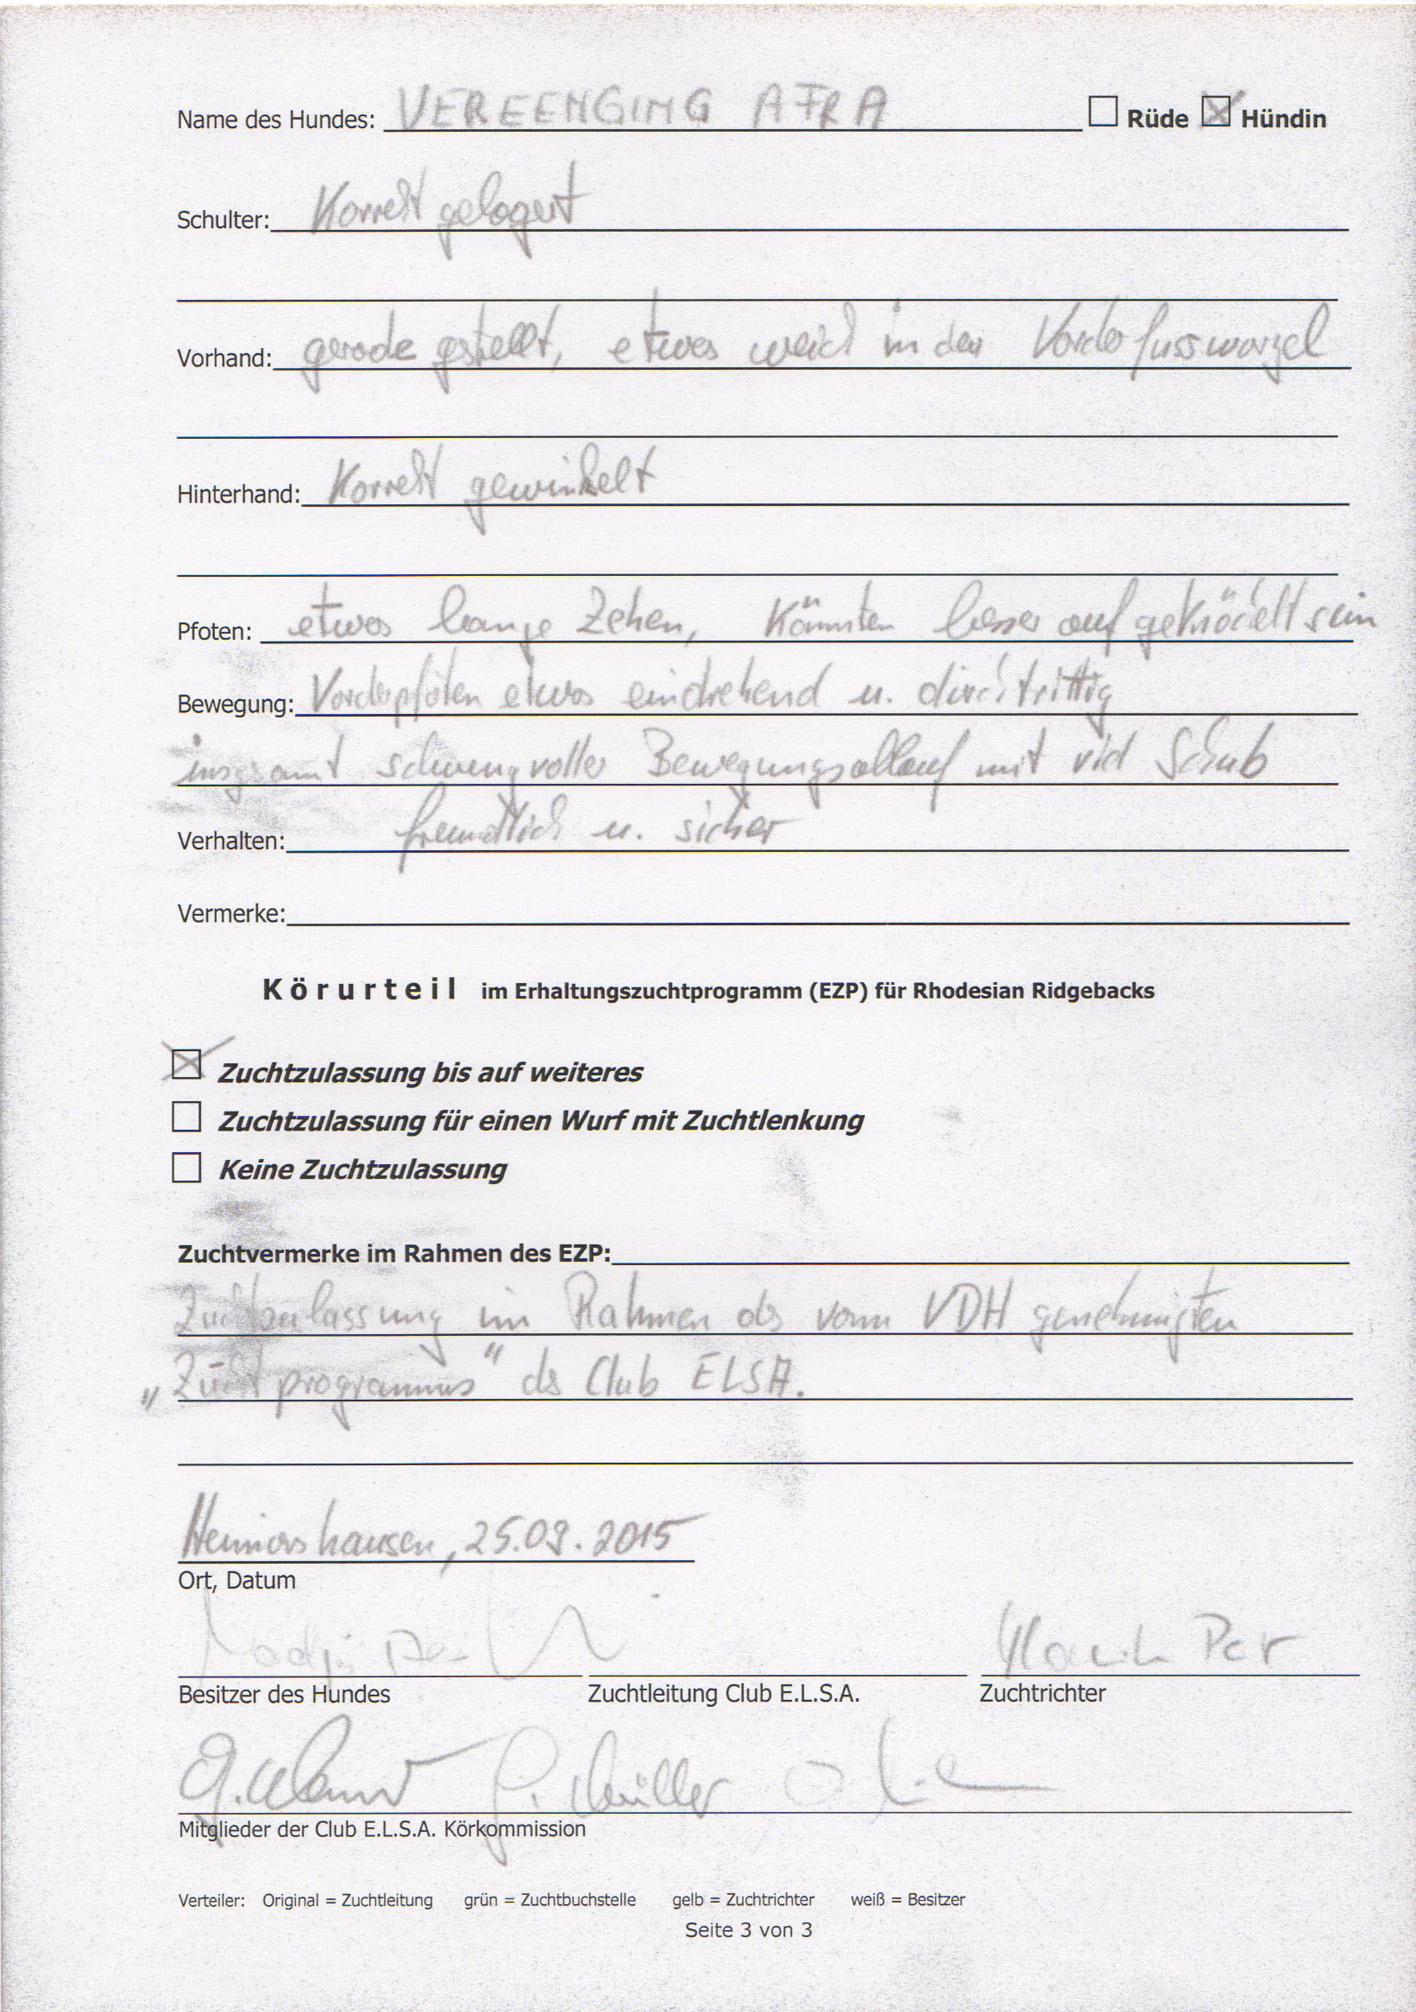 Name des Hundes: VEREENGING AFRA Rüde Hündin
Schulter: Korrekt gelagert
Vorhand: gerade gestellt, etwas weich in der Vorderfusswurzel
Hinterhand: Korrekt gewinkelt
Pfoten: etwas lange Zehen, Könnten besser aufgeknöchelt sein
Bewegung: Vorderpfoten etwas eindrehend u. durchtrittig
insgesamt schwungvoller Bewegungsablauf mit viel Schub
Verhalten: freundlich u. sicher
Vermerke:
Körurteil im Erhaltungszuchtprogramm (EZP) für Rhodesian Ridgebacks
Zuchtzulassung bis auf weiteres
Zuchtzulassung für einen Wurf mit Zuchtlenkung
Keine Zuchtzulassung
Zuchtvermerke im Rahmen des EZP:
Zuchtzulassung im Rahmen des vom VDH genehmigten
„Zuchtprogramms" des Club ELSA.
25.09.2015
Ort, Datum
Besitzer des Hundes Zuchtleitung Club E.L.S.A. Zuchtrichter
Müller
Mitglieder der Club E.L.S.A. Körkommission
Verteiler: Original = Zuchtleitung grün = Zuchtbuchstelle gelb = Zuchtrichter weiß = Besitzer
Seite 3 von 3